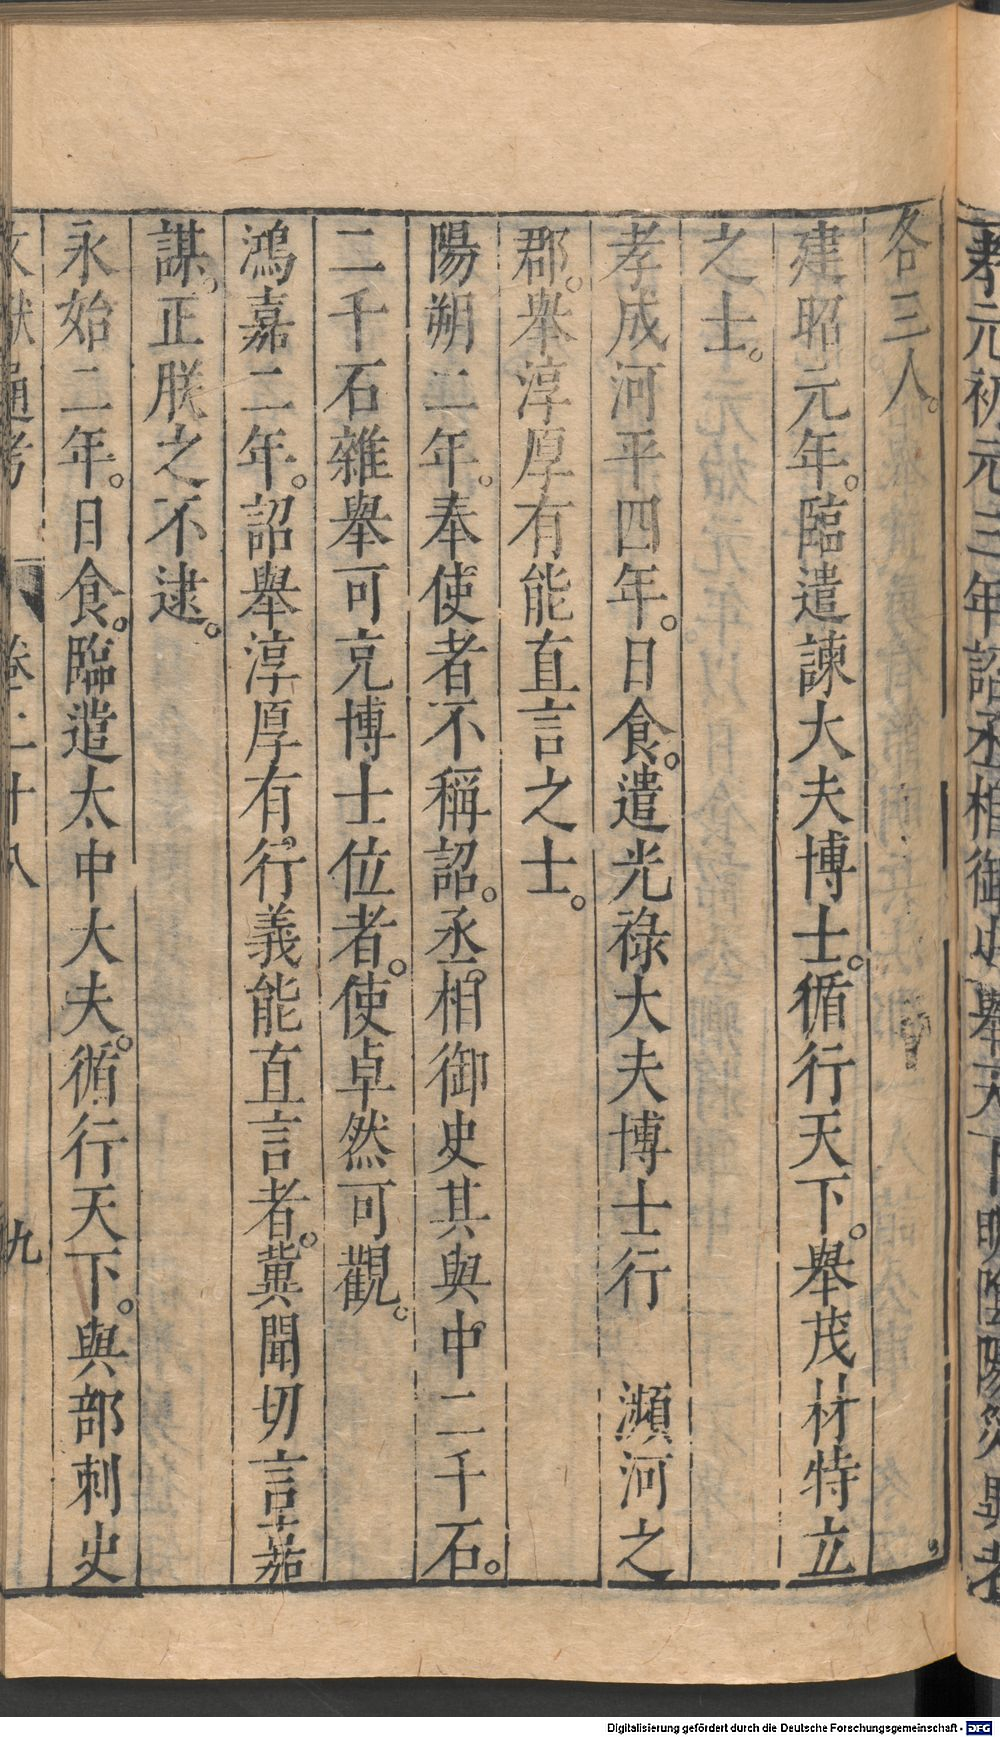 孝元初元三年詔丞相御史舉天下明陰陽災異者
各三人。
建昭元年。臨遣諫大夫博士。循行天下。舉茂材特立
之士。
孝成河平四年。日食。遣光祿大夫博士行　瀕河之
郡。舉淳厚有能直言之士。
陽朔二年。奉使者不稱詔。丞相御史其與中二千石。
二千石雜舉可充博士位者。使卓然可觀。
鴻嘉二年。詔舉淳厚有行義能直言者。冀聞切言嘉
謀。正朕之不逮。
永始二年。日食。臨遣太中大夫。循行天下。與部刺史
文獻通考　卷二十八　九
Digitalisierung gefördert durch die Deutsche Forschungsgemeinschaft - DFG